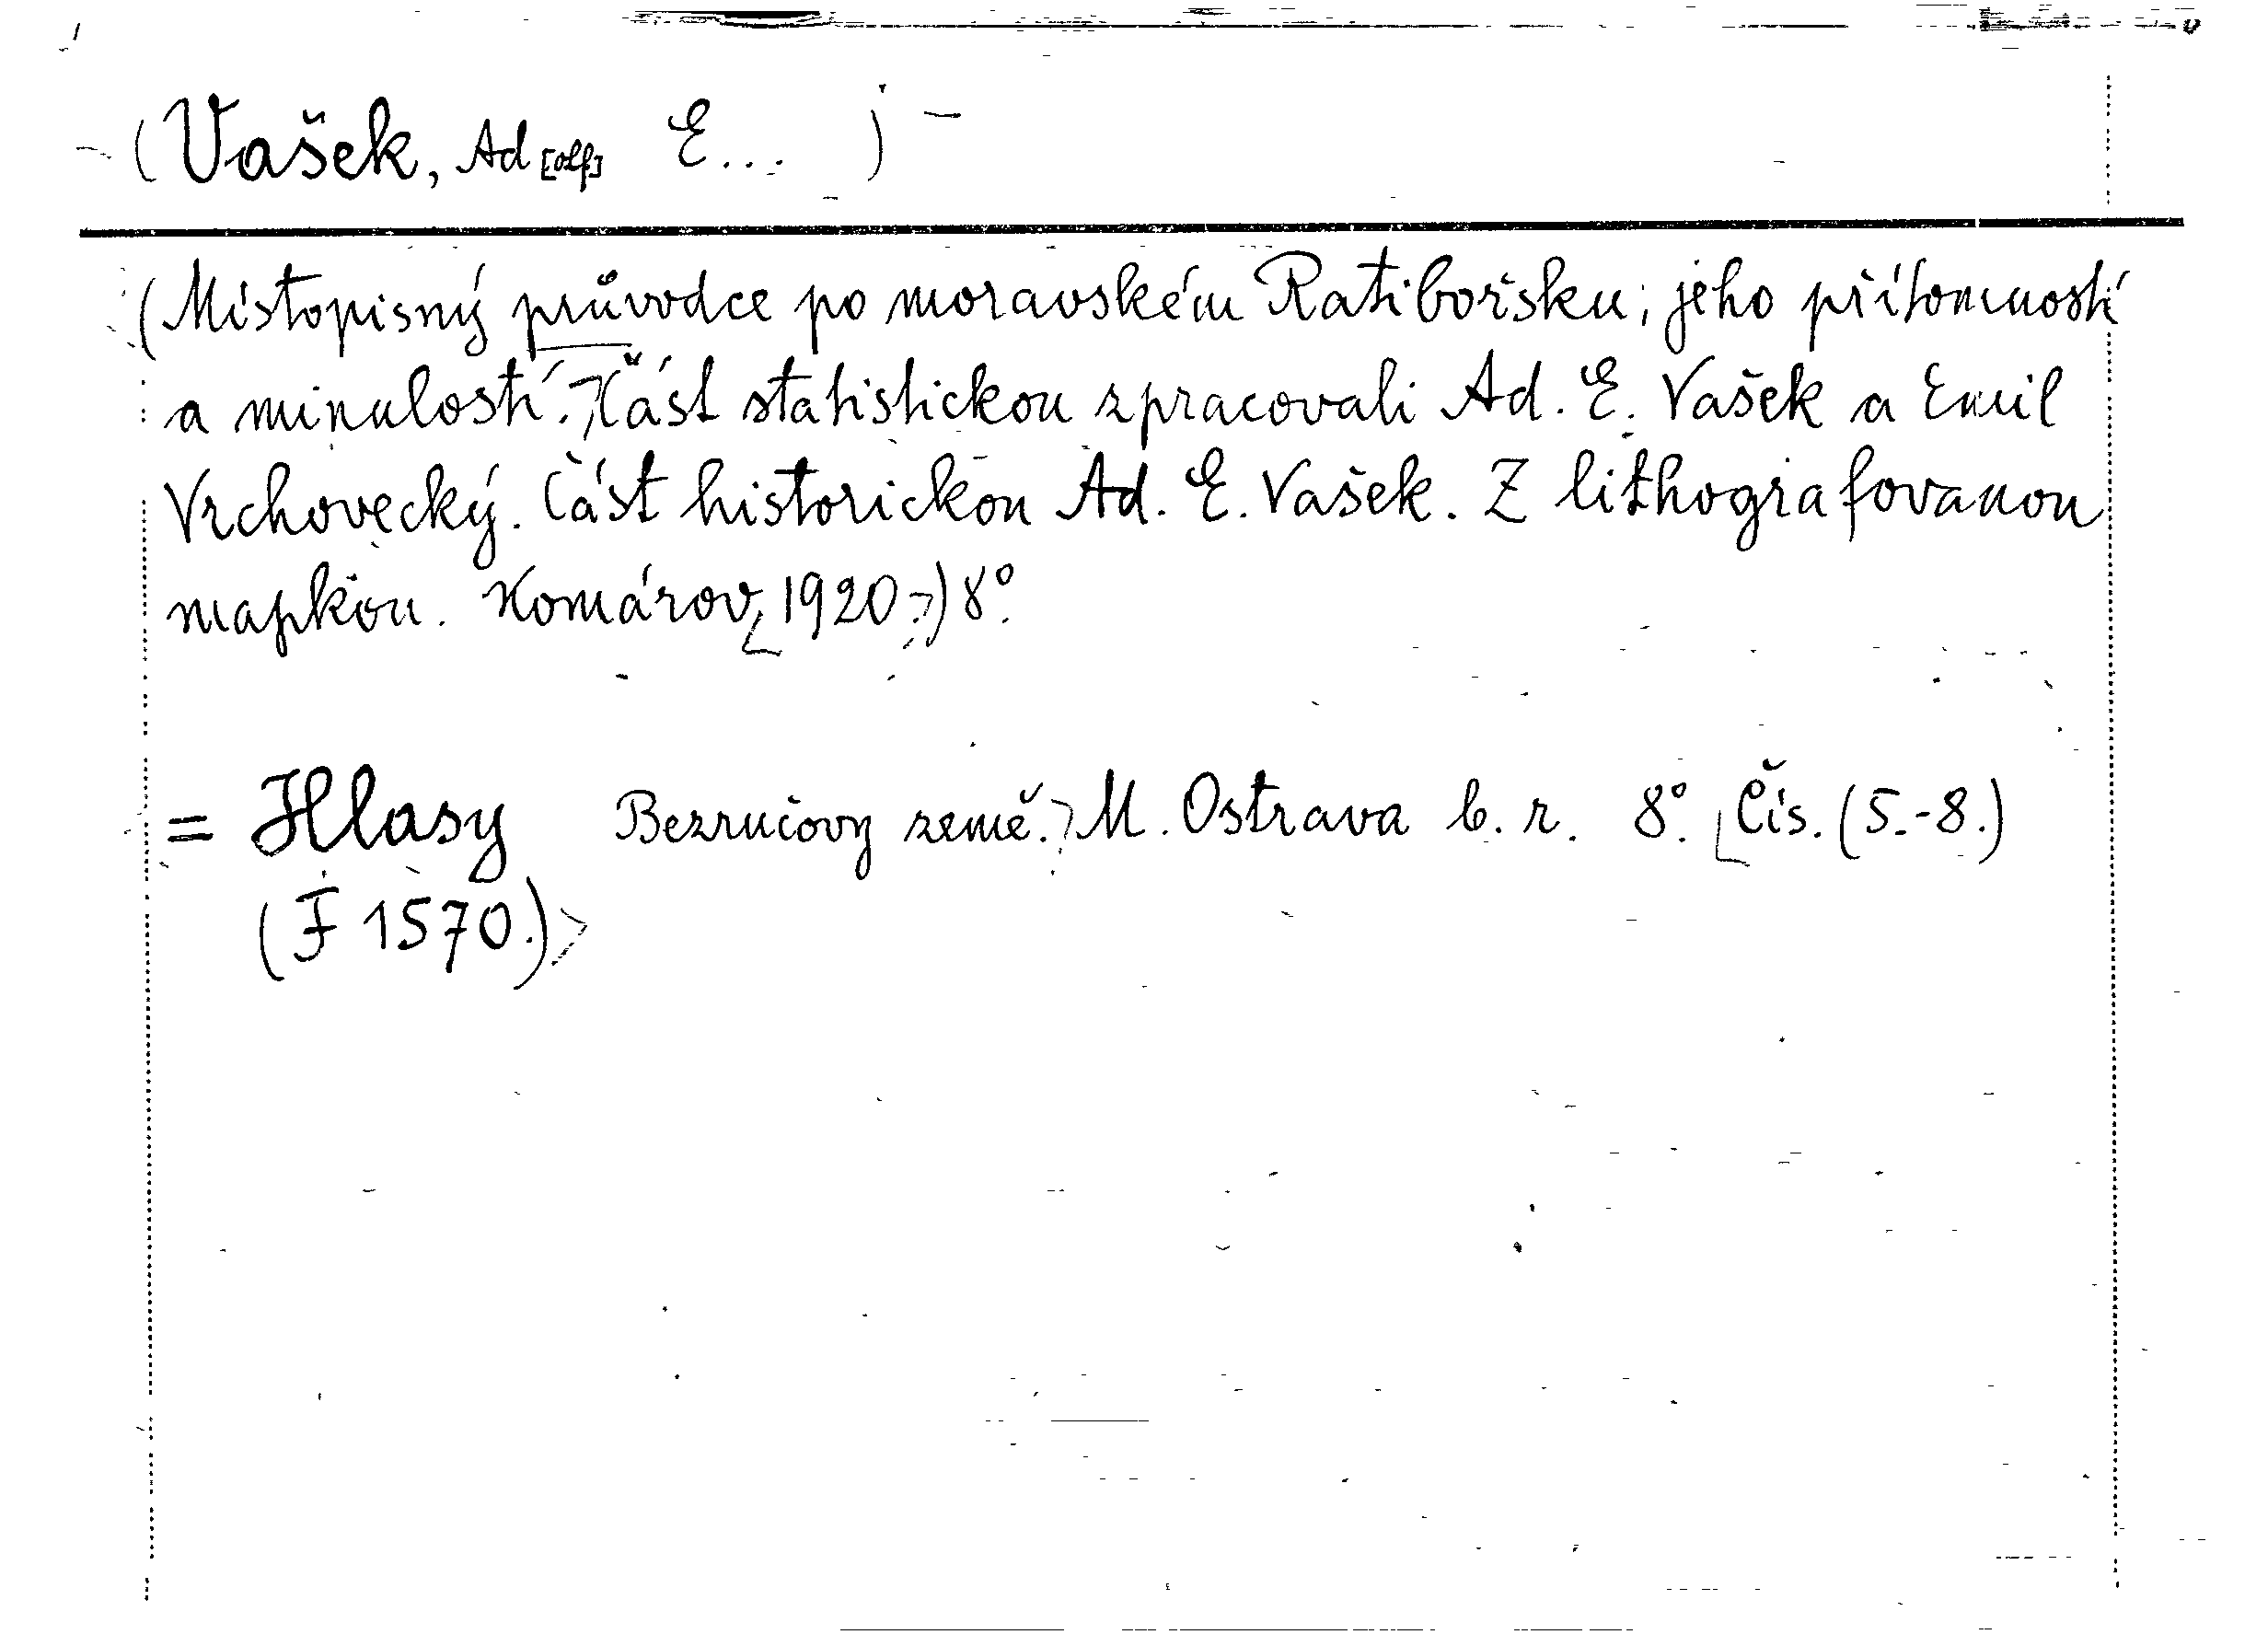 (Vašek, Ad[olf] E... )
(Místopisný průvodce po moravském Ratibořsku; jeho přítomností
a minulostí. Část statistickou zpracovali Ad. E. Vašek a Emil
Vrchovecký. Část historickou Ad. E. Vašek. Z lithografovanou
mapkou. Komárov, 1920.) 8°.
= Hlasy Bezručovy země. M. Ostrava b. r. 8°. [Čís. (5.-8.)
(F 1570.)